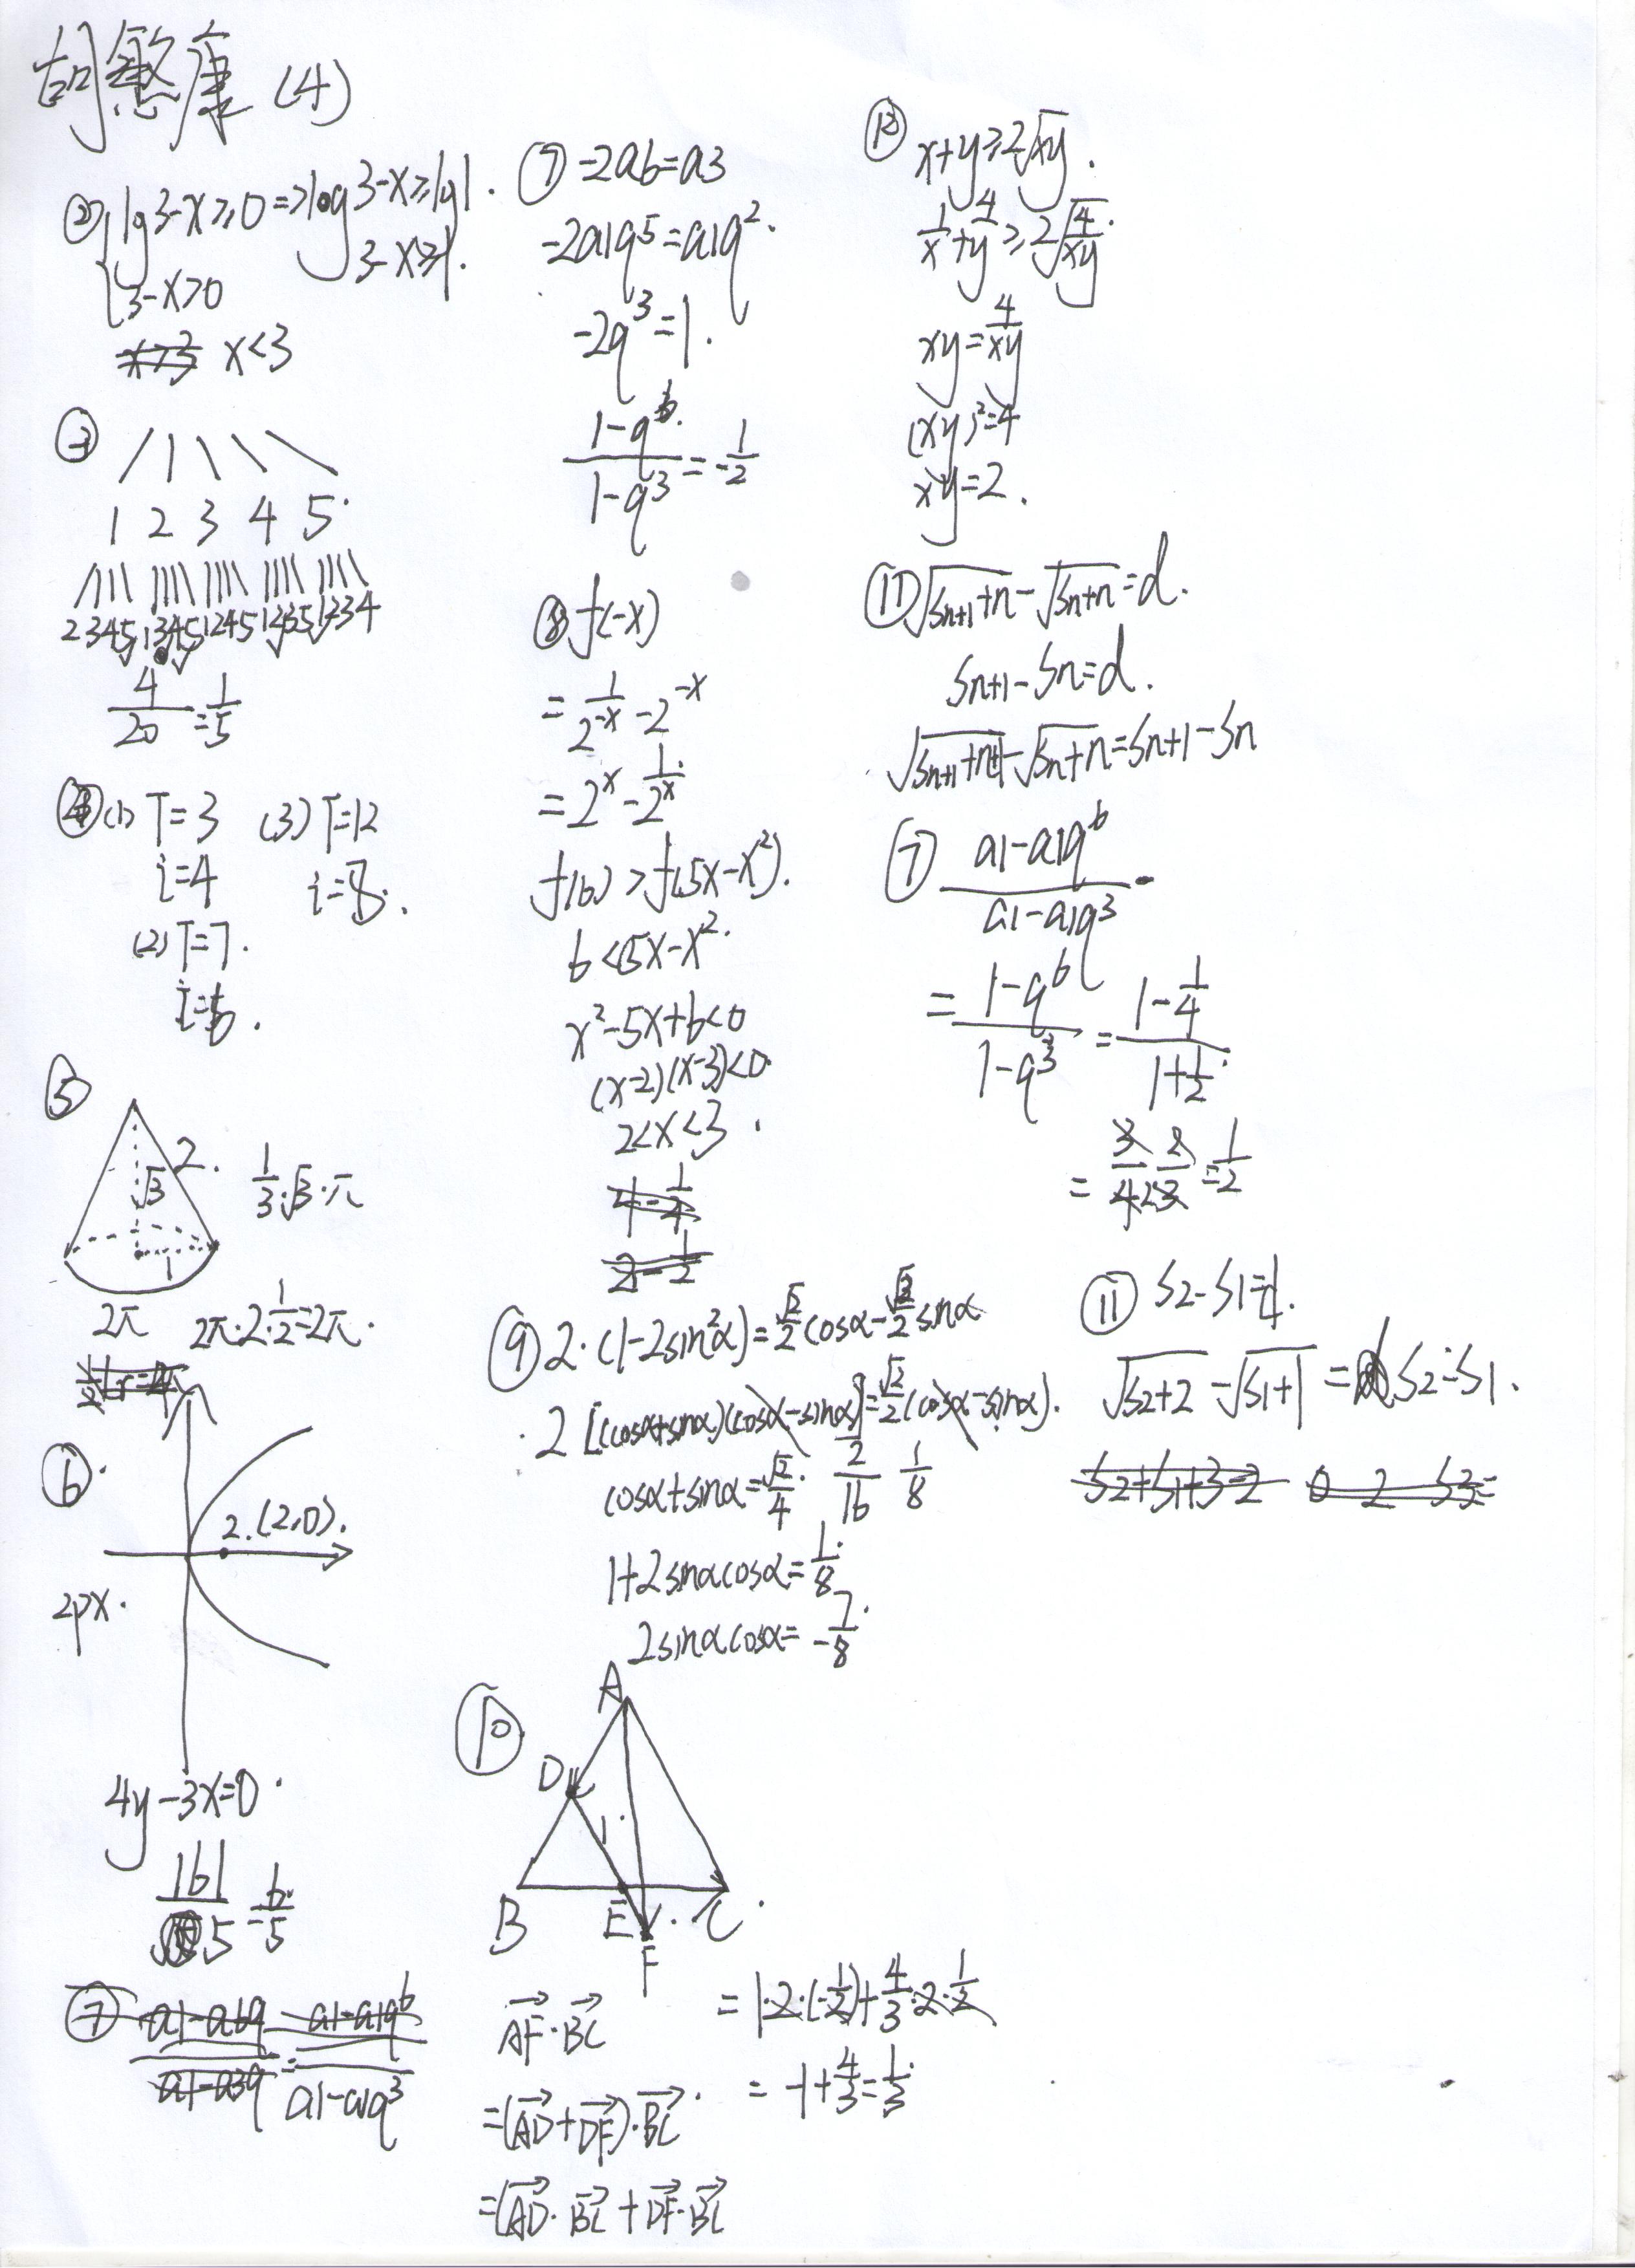 胡慜康 (4)
② lg3-x≥0 => log3-x≥lg1.
3-x≥1.
3-x>0
x<3
③
1 2 3 4 5.
2345 1345 1245 1235 1234
4/20 = 1/5
④ (1) T=3 (3) T=12
i=4 i=8.
(2) T=7.
i=6.
⑤
2. √3 1
1/3·√3·π
2π 2π·2·1/2=2π.
⑥
2. (2,0).
2px.
4y-3x=0.
|6|/5 = 6/5
⑦ a1-a1q^6
a1-a1q³
⑦ -2a6=a3
-2a1q⁵=a1q².
-2q³=1.
1-q^6/1-q³ = -1/2
⑧ f(-x)
= 1/2^-x - 2^-x
= 2^x - 1/2^x.
f(6)>f(5x-x²).
6<5x-x².
x²-5x+6<0
(x-2)(x-3)<0.
2<x<3.
4-1/4
2-1/2
⑨ 2·(1-2sin²α)=√2/2 cosα-√2/2 sinα
2[(cosα+sinα)(cosα-sinα)]=√2/2(cosα-sinα).
cosα+sinα=√2/4. 2/16 1/8
1+2sinαcosα=1/8.
2sinαcosα=-7/8.
⑩
A
D
1.
B E C.
F
AF·BC
=(AD+DF)·BC
=(AD·BC+DF·BC
=1·2·(-1/2)+4/3·2·1/2
=-1+4/3=1/3.
⑫ x+y≥2√xy.
1/x+4/y≥2√4/xy.
xy=4/xy
(xy)²=4
xy=2.
⑪ √Sn+1+n-√Sn+n=d.
Sn+1-Sn=d.
√Sn+1+n+1-√Sn+n=Sn+1-Sn
⑦ a1-a1q^6/a1-a1q³
= 1-q^6/1-q³ = 1-1/4/1+1/2.
= 3/4·2/3=1/2
⑪ S2-S1=d.
√S2+2-√S1+1=S2-S1.
S2+S1+3-2 0 2 S3=